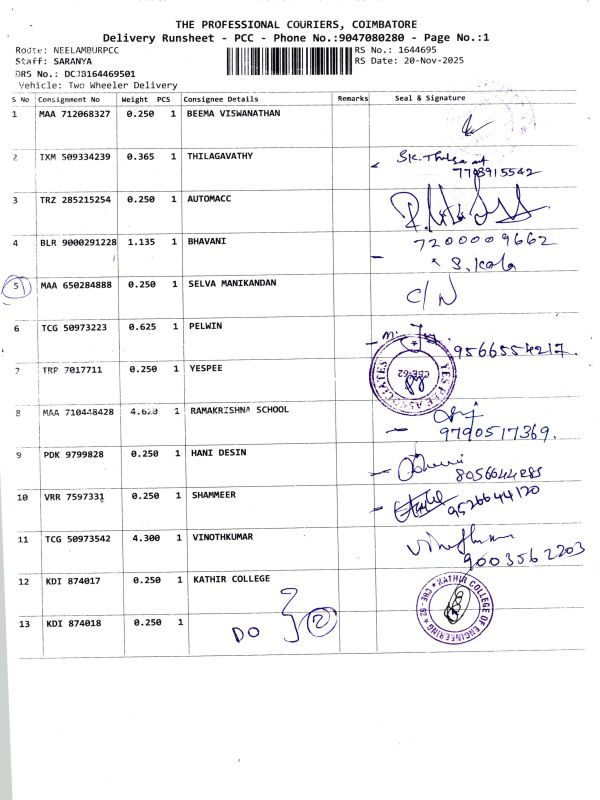 THE PROFESSIONAL COURIERS, COIMBATORE
Delivery Runsheet - PCC - Phone No.:9047080280 - Page No.:1
Route: NEELAMBURPCC RS No.: 1644695
Staff: SARANYA RS Date: 20-Nov-2025
DRS No.: DCJB164469501
Vehicle: Two Wheeler Delivery
S No Consignment No Weight PCS Consignee Details Remarks Seal & Signature
1 MAA 712068327 0.250 1 BEEMA VISWANATHAN
2 IXM 509334239 0.365 1 THILAGAVATHY
7708915542
3 TRZ 285215254 0.250 1 AUTOMACC
4 BLR 9000291228 1.135 1 BHAVANI 7200009662
S. Kala
5 MAA 650284888 0.250 1 SELVA MANIKANDAN C/N
6 TCG 50973223 0.625 1 PELWIN
9566554217.
7 TRP 7017711 0.250 1 YESPEE YES PEE ASSOCIATES CBE-62
8 MAA 710448428 4.620 1 RAMAKRISHNA SCHOOL
9790517369.
9 PDK 9799828 0.250 1 HANI DESIN
8056644285
10 VRR 7597331 0.250 1 SHAMMEER 9526644120
11 TCG 50973542 4.300 1 VINOTHKUMAR Vinothkumar
9003562203
12 KDI 874017 0.250 1 KATHIR COLLEGE KATHIR COLLEGE OF ENGINEERING CBE - 62
13 KDI 874018 0.250 1 DO 2